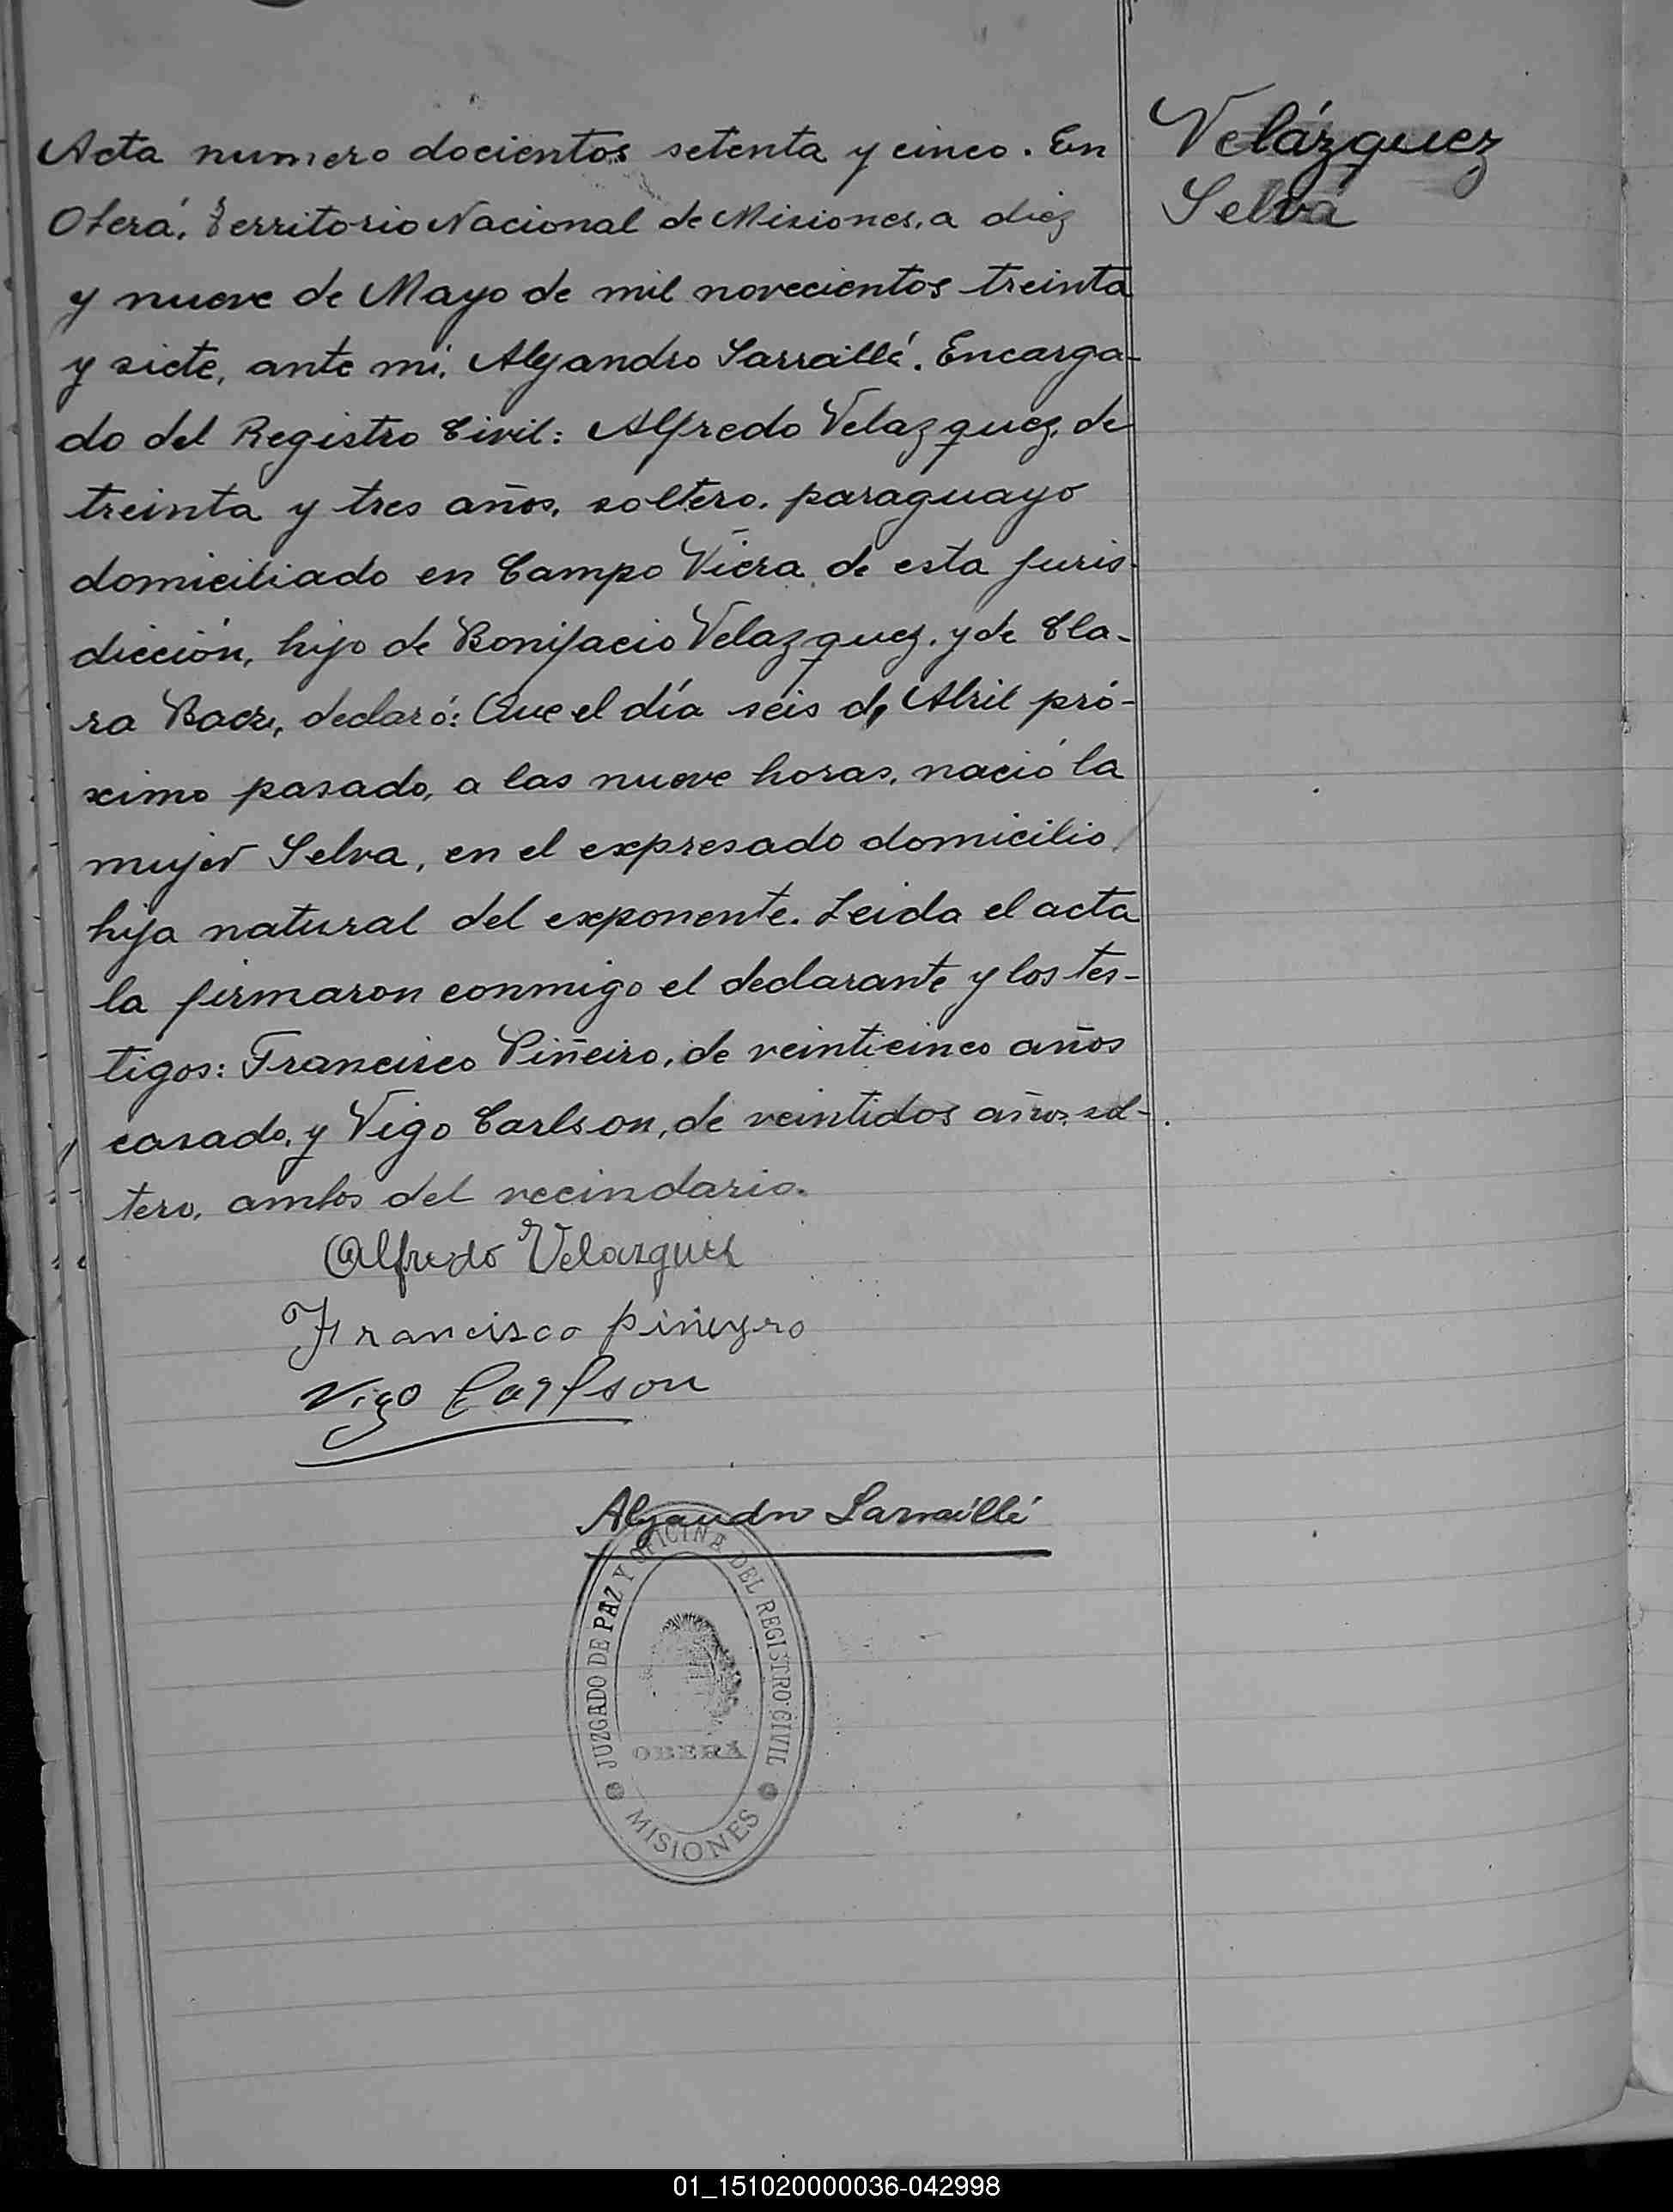 Acta numero docientos setenta y cinco. En
Oberá, Territorio Nacional de Misiones, a diez
y nueve de Mayo de mil novecientos treinta
y siete, ante mi, Alejandro Sarraillé. Encarga-
do del Registro Civil: Alfredo Velazquez, de
treinta y tres años, soltero, paraguayo
domiciliado en Campo Viera de esta juris-
dicción, hijo de Bonifacio Velazquez, y de Cla-
ra Baez, declaró: Que el día seis de Abril pró-
ximo pasado, a las nueve horas, nació la
mujer Selva, en el expresado domicilio
hija natural del exponente. Leida el acta
la firmaron conmigo el declarante y los tes-
tigos: Francisco Piñeiro, de veinticinco años
casado, y Vigo Carlson, de veintidos años, sol-
tero, ambos del vecindario.
Alfredo Velazquez
Francisco piñeyro
Vigo Carlson
Alejandro Sarraillé
JUZGADO DE PAZ Y OFICINA DEL REGISTRO CIVIL
OBERÁ
MISIONES
Velázquez
Selva
01_151020000036-042998